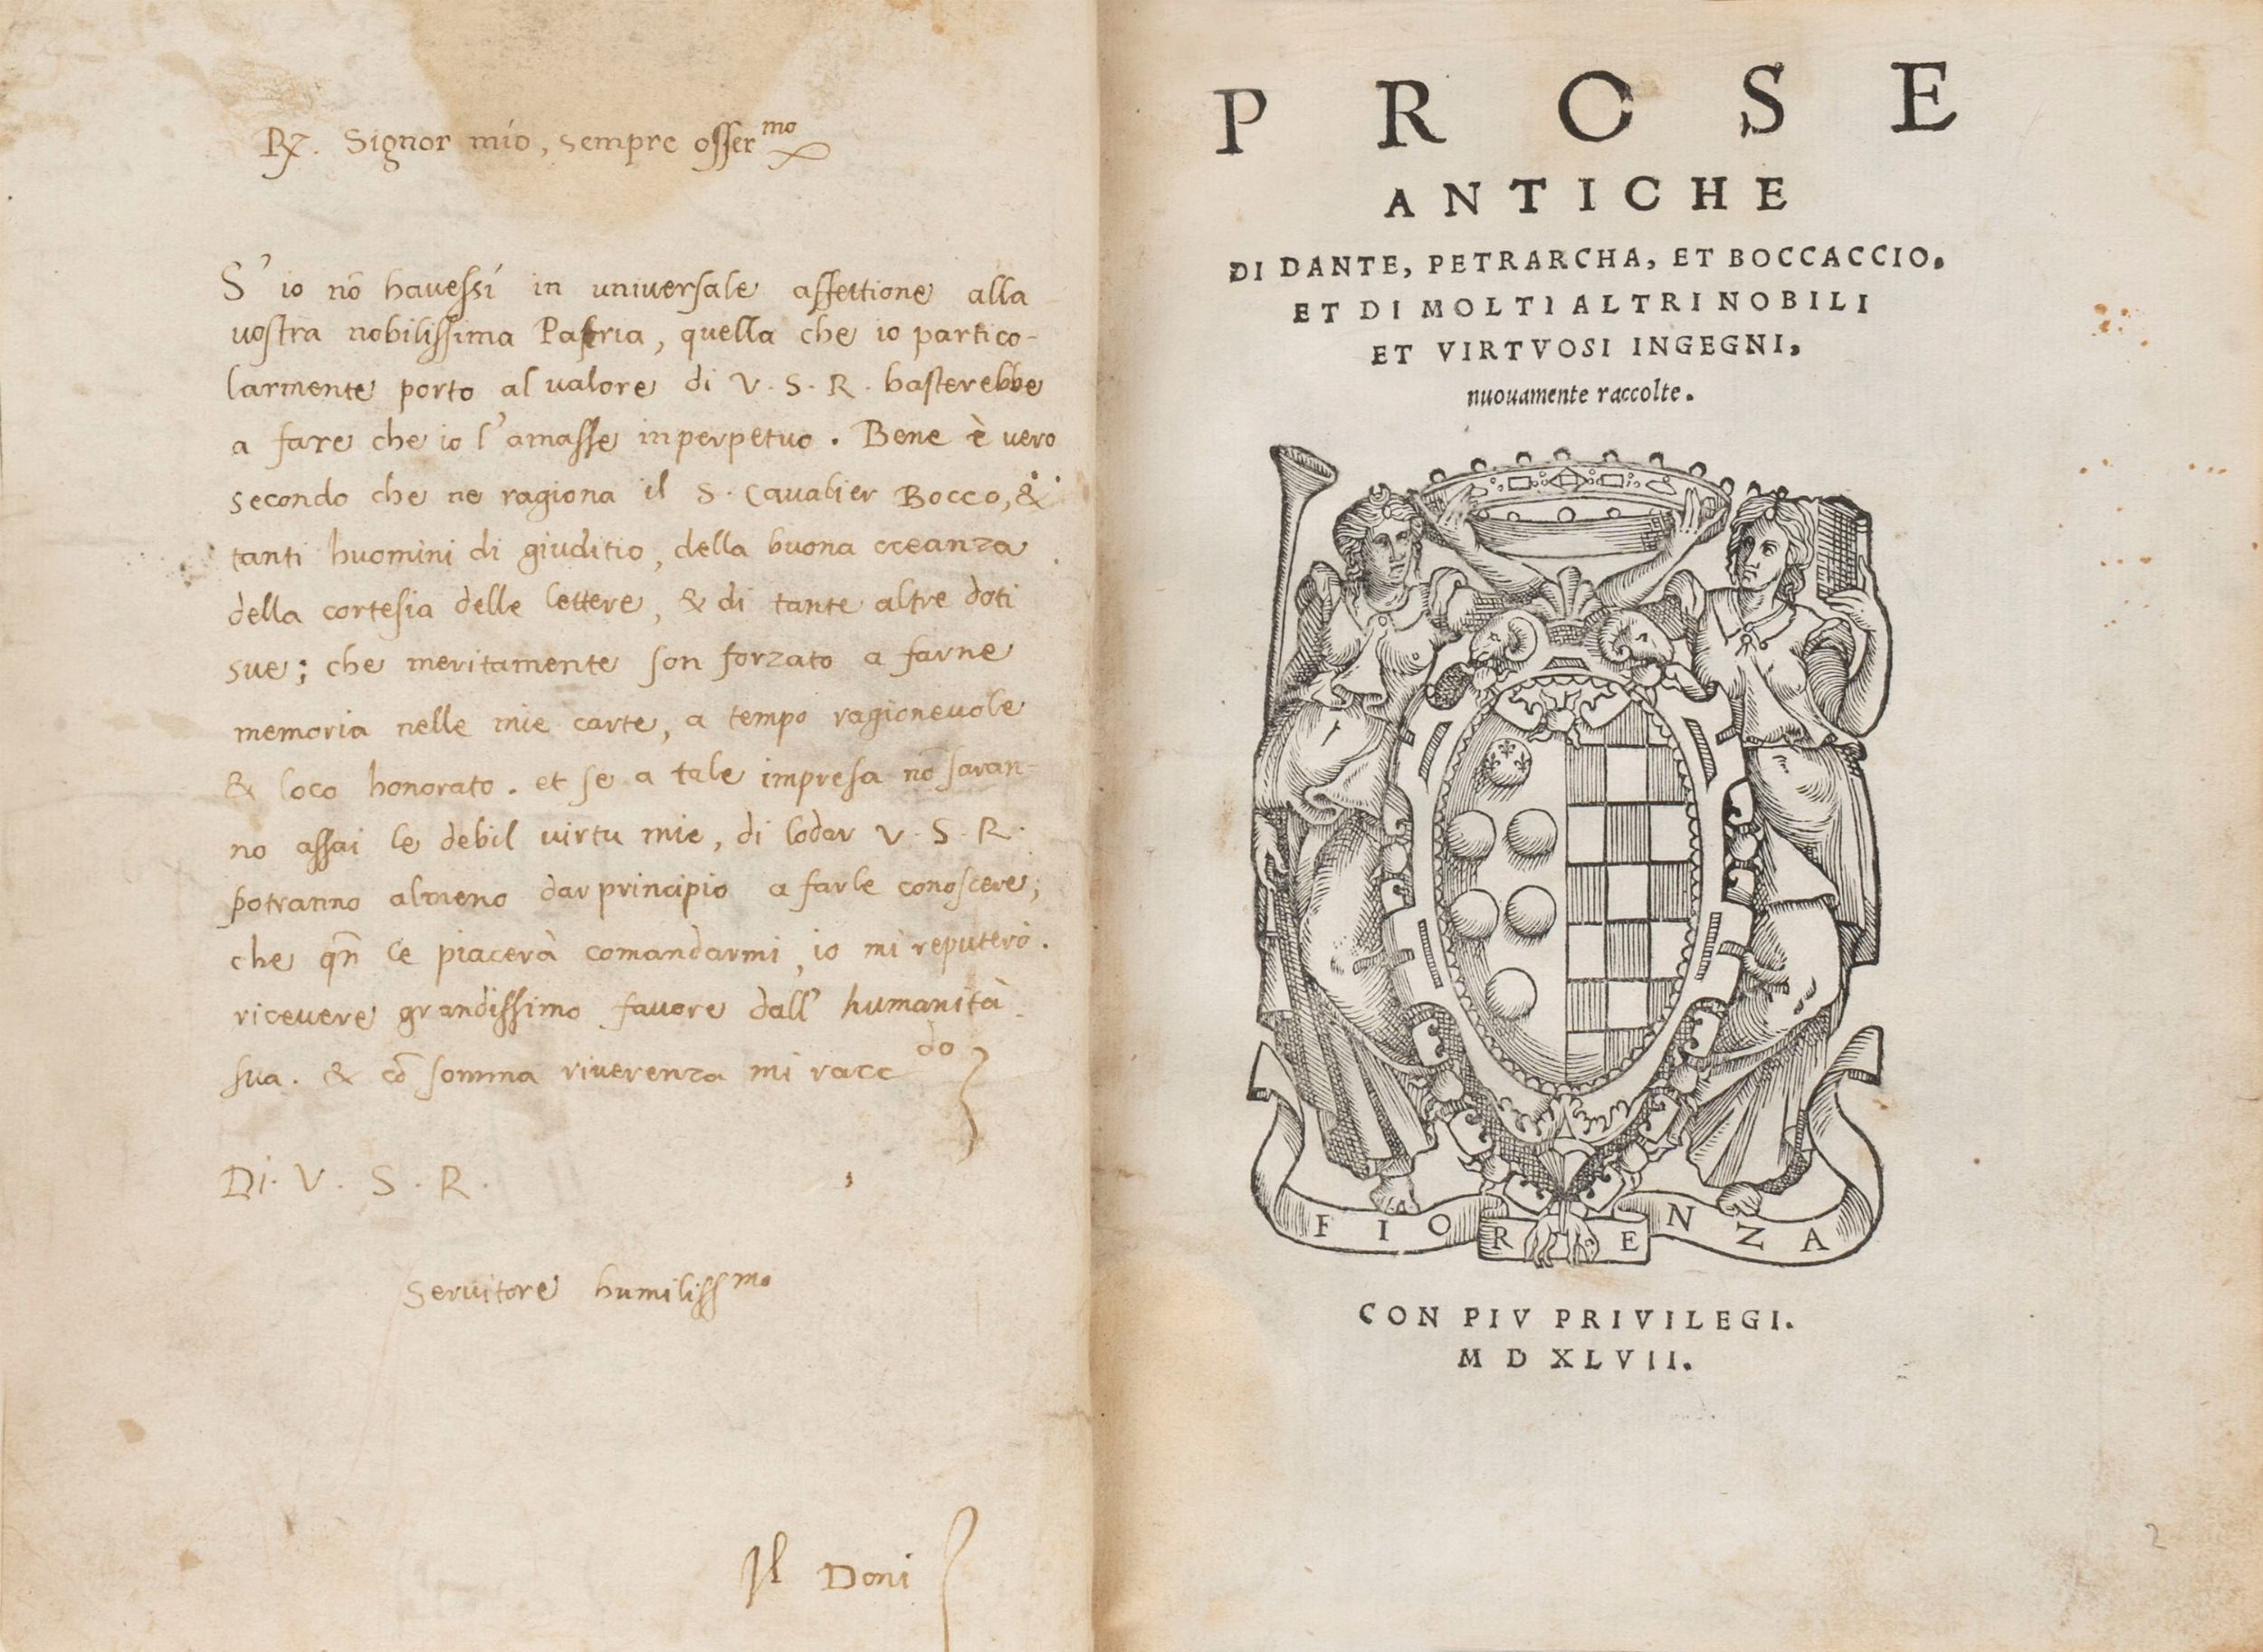 R. Signor mio, sempre osser^mo
S' io nō hauessi in uniuersale affettione alla
uostra nobilissima Patria, quella che io partico-
larmente porto al ualore di V. S. R. basterebbe
a fare che io l'amasse in perpetuo. Bene è uero
secondo che ne ragiona il S. Caualier Bocco, &
tanti huomini di giuditio, della buona creanza
della cortesia delle lettere, & di tante altre doti
sue; che meritamente son forzato a farne
memoria nelle mie carte, a tempo ragioneuole
& loco honorato. et se a tale impresa nō saran-
no assai le debil uirtu mie, di lodar V. S. R.
potranno almeno dar principio a farle conoscere;
che qn̄ le piacerà comandarmi, io mi reputerò.
riceuere grandissimo fauore dall' humanità
sua. & cō somma riuerenza mi racc^do
Di. V. S. R.
Seruitore humiliss^mo
Il Doni
PROSE
ANTICHE
DI DANTE, PETRARCHA, ET BOCCACCIO.
ET DI MOLTI ALTRI NOBILI
ET VIRTVOSI INGEGNI,
nuouamente raccolte.
FIORENZA
CON PIV PRIVILEGI.
M D XLVII.
2